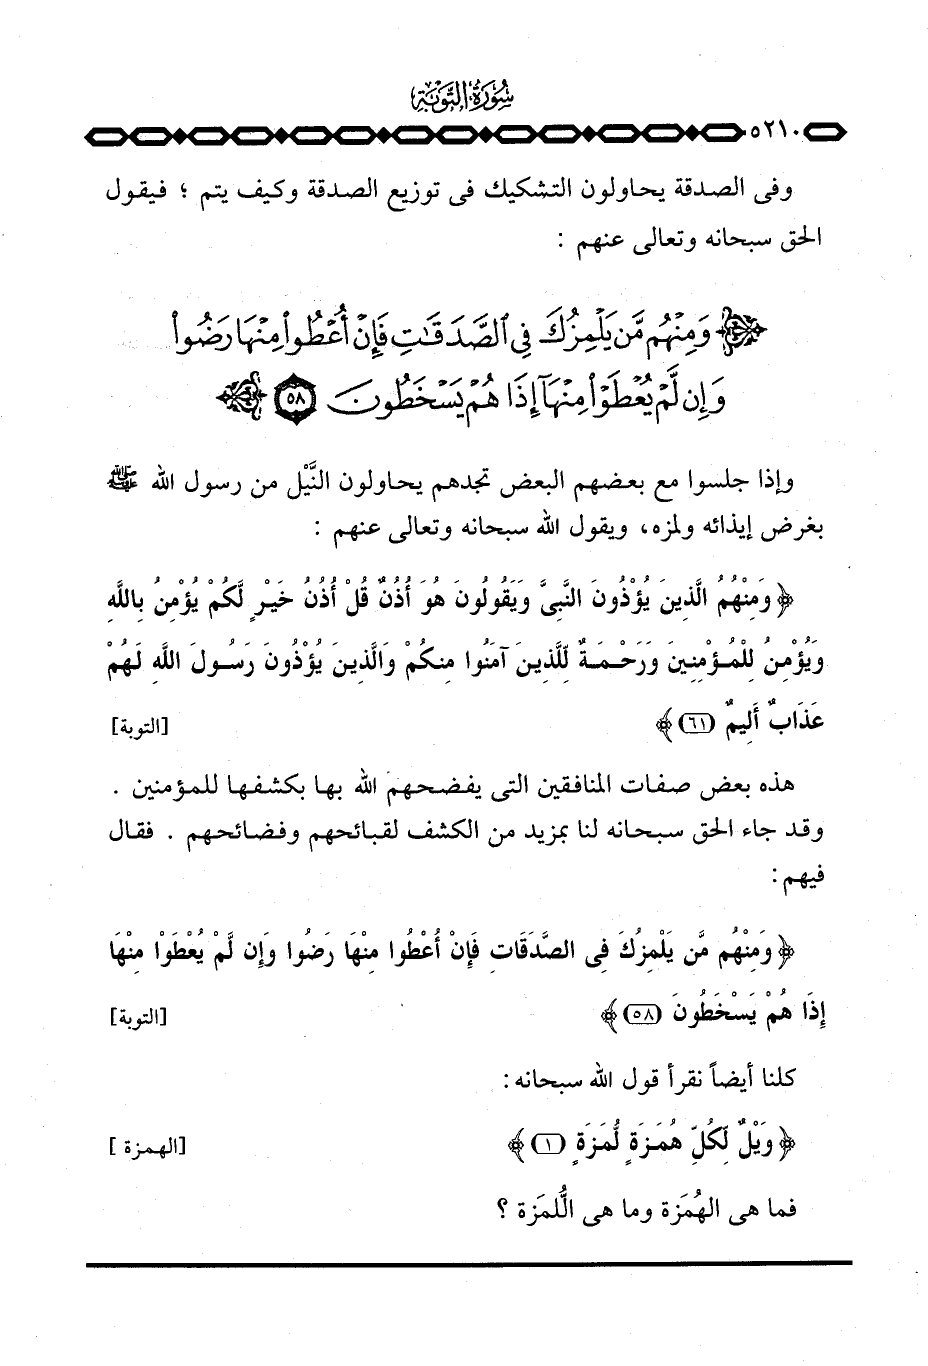 سُورَةُ التَّوْبَةِ
٥٢١٠
وفى الصدقة يحاولون التشكيك فى توزيع الصدقة وكيف يتم ؛ فيقول
الحق سبحانه وتعالى عنهم :
وَمِنْهُم مَّن يَلْمِزُكَ فِى ٱلصَّدَقَٰتِ فَإِنْ أُعْطُوا۟ مِنْهَا رَضُوا۟
وَإِن لَّمْ يُعْطَوْا۟ مِنْهَآ إِذَا هُمْ يَسْخَطُونَ ٥٨
وإذا جلسوا مع بعضهم البعض تجدهم يحاولون النَّيْل من رسول الله ﷺ
بغرض إيذائه ولمزه، ويقول الله سبحانه وتعالى عنهم :
﴿ وَمِنْهُمُ الَّذِينَ يُؤْذُونَ النَّبِىَّ وَيَقُولُونَ هُوَ أُذُنٌ قُلْ أُذُنُ خَيْرٍ لَّكُمْ يُؤْمِنُ بِاللَّهِ
وَيُؤْمِنُ لِلْمُؤْمِنِينَ وَرَحْمَةٌ لِّلَّذِينَ آمَنُوا مِنكُمْ وَالَّذِينَ يُؤْذُونَ رَسُولَ اللَّهِ لَهُمْ
عَذَابٌ أَلِيمٌ (٦١) ﴾ [التوبة]
هذه بعض صفات المنافقين التى يفضحهم الله بها بكشفها للمؤمنين .
وقد جاء الحق سبحانه لنا بمزيد من الكشف لقبائحهم وفضائحهم . فقال
فيهم :
﴿ وَمِنْهُم مَّن يَلْمِزُكَ فِى الصَّدَقَاتِ فَإِنْ أُعْطُوا مِنْهَا رَضُوا وَإِن لَّمْ يُعْطَوْا مِنْهَا
إِذَا هُمْ يَسْخَطُونَ (٥٨) ﴾ [التوبة]
كلنا أيضاً نقرأ قول الله سبحانه :
﴿ وَيْلٌ لِّكُلِّ هُمَزَةٍ لُّمَزَةٍ (١) ﴾ [الهمزة ]
فما هى الهُمَزة وما هى اللُّمَزة ؟